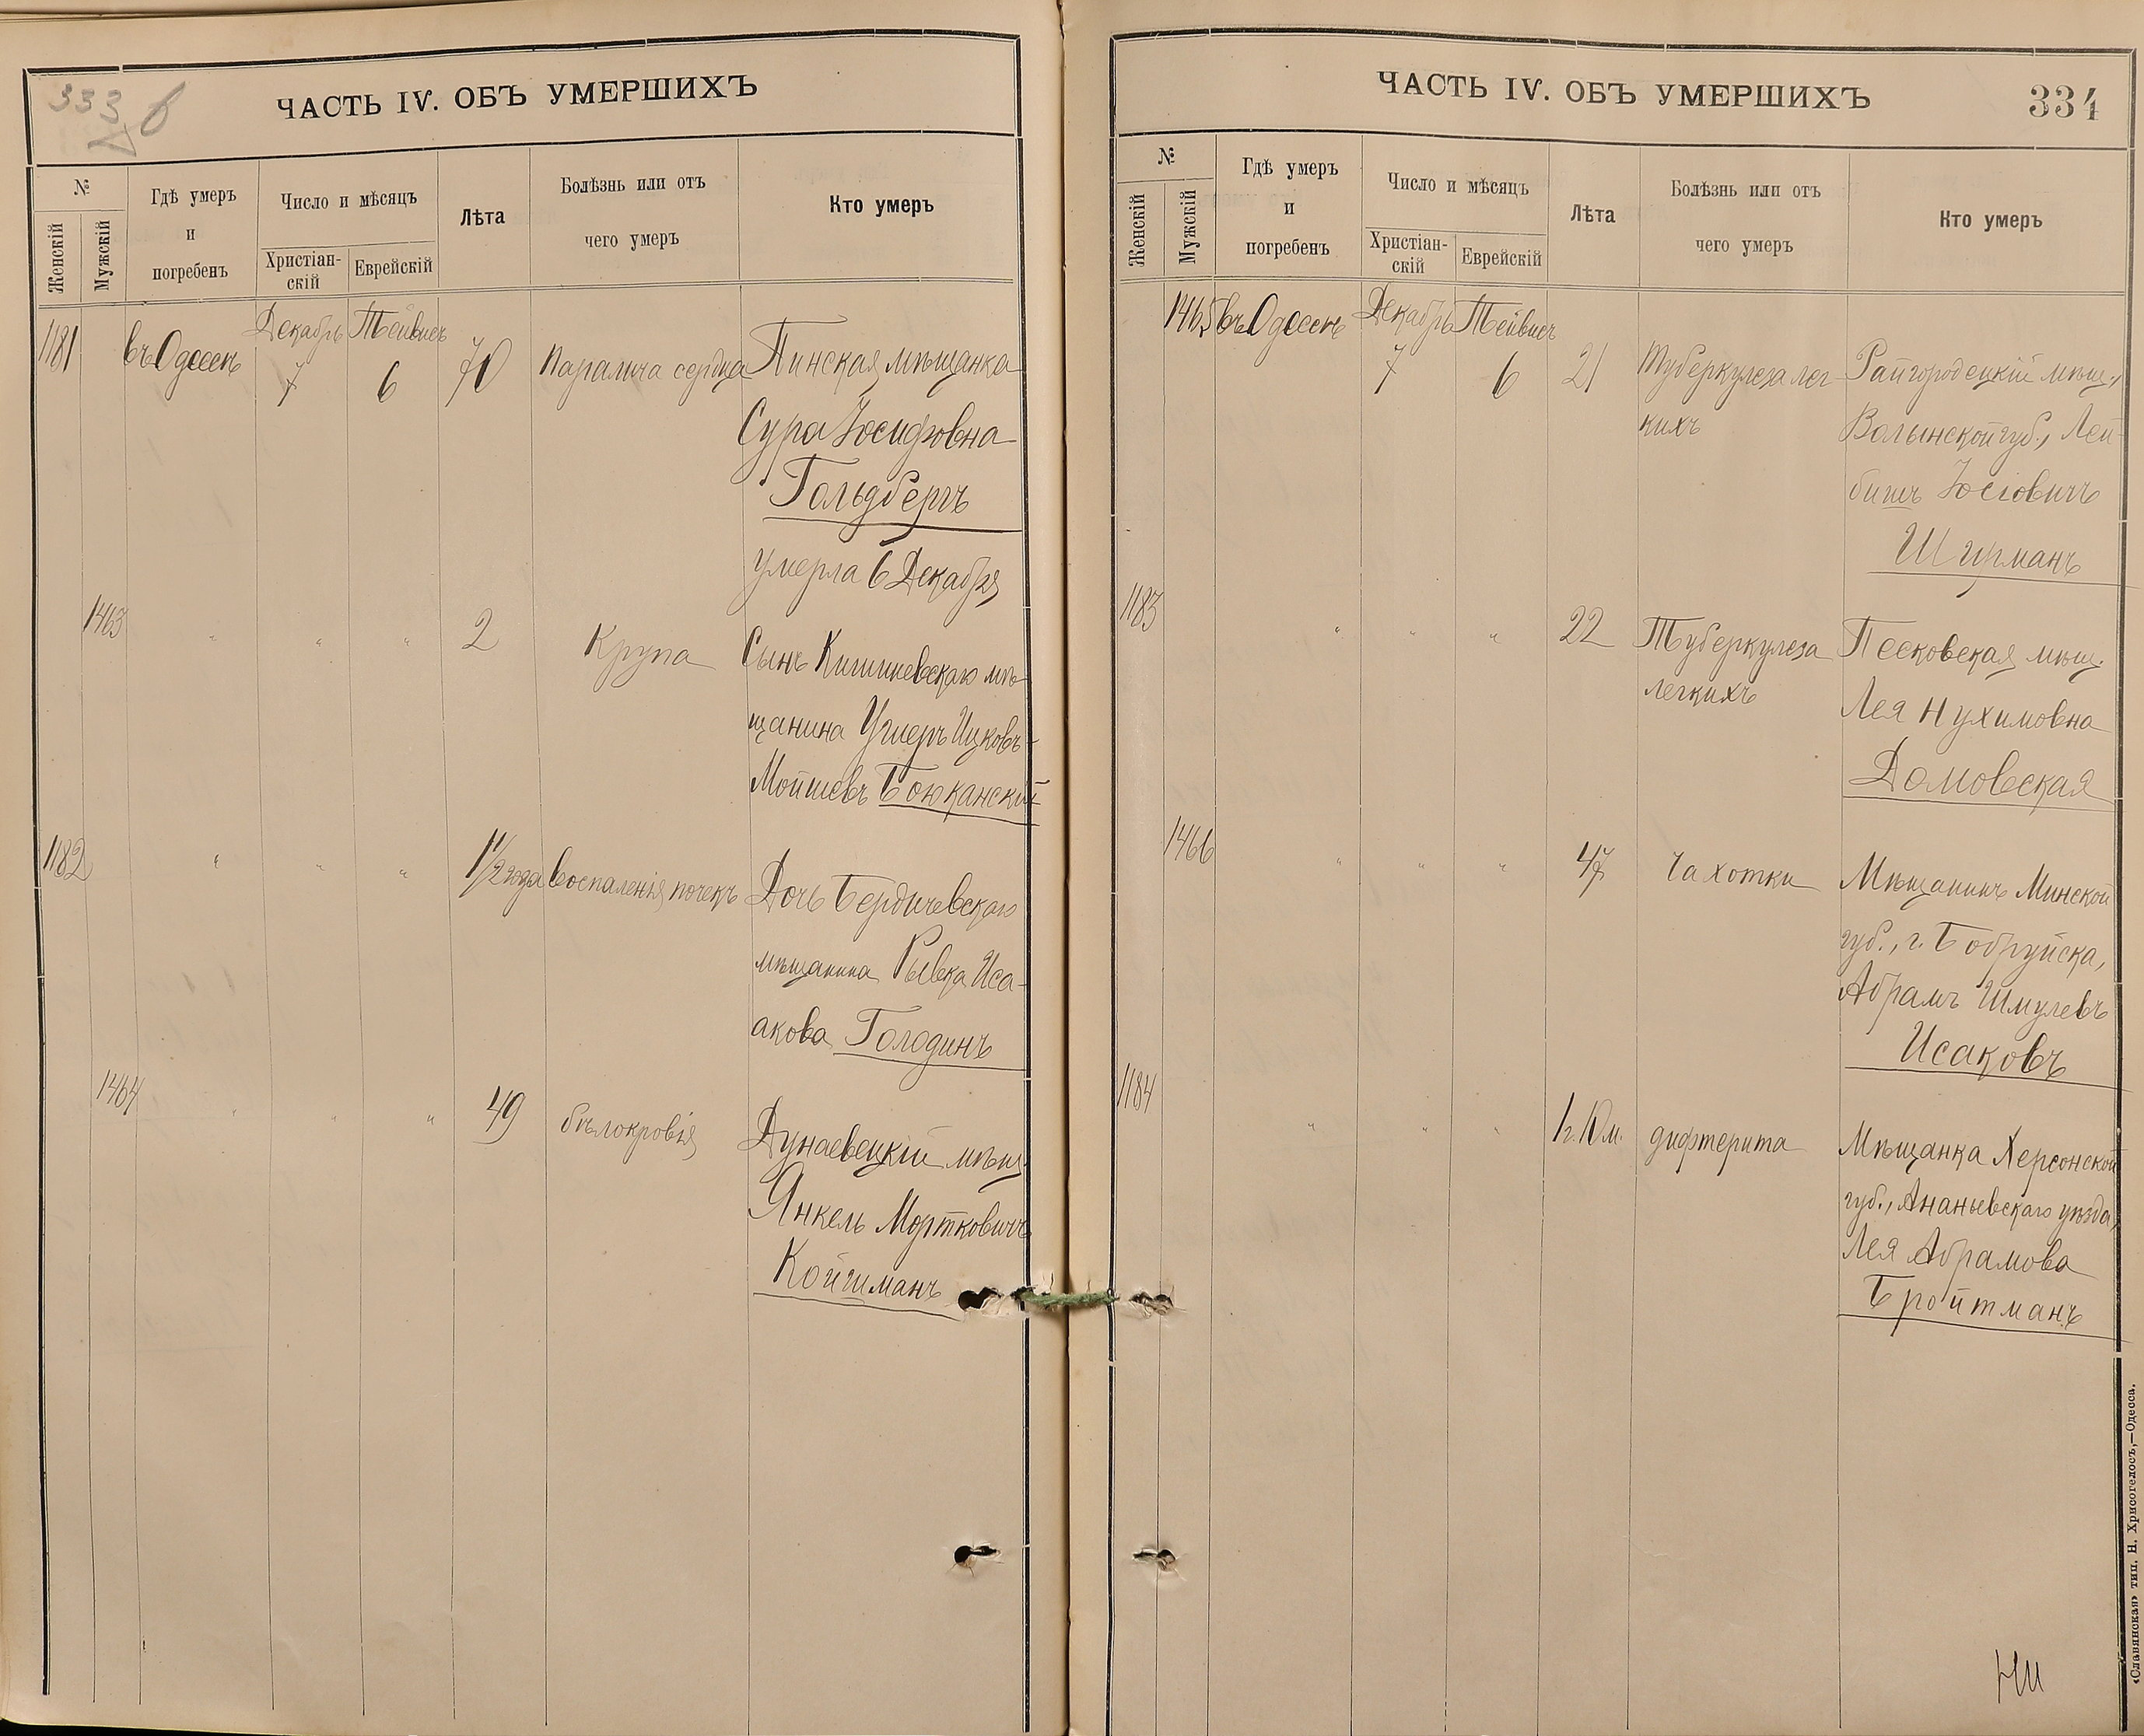 333
ЧАСТЬ IV. ОБЪ УМЕРШИХЪ
№
Женскій
Мужскій
Гдѣ умеръ
и
погребенъ
Число и мѣсяцъ
Христіан-
скій
Еврейскій
Лѣта
Болѣзнь или отъ
чего умеръ
Кто умеръ
1181 въ Одессѣ Декабрь 7 Тейвисъ 6 70 Паралича сердца Пинская мѣщанка
Сура Іосифовна
Гольдбергъ
умерла 6 Декабря
1463 " " " 2 Крупа Сынъ Кишиневскаго мѣ-
щанина Ушеръ Ицковъ-
Мойшевъ Боюканскій
1182 " " " 1 1/2 года Воспаленія почекъ Дочь Бердичевскаго
мѣщанина Рывка Иса-
акова Голодинъ
1464 " " " 49 бѣлокровія Дунаевецкій мѣщ.
Янкель Мортковичъ
Койшманъ
ЧАСТЬ IV. ОБЪ УМЕРШИХЪ
334
№
Женскій
Мужскій
Гдѣ умеръ
и
погребенъ
Число и мѣсяцъ
Христіан-
скій
Еврейскій
Лѣта
Болѣзнь или отъ
чего умеръ
Кто умеръ
1465 въ Одессѣ Декабрь 7 Тейвисъ 6 21 Туберкулеза лег- Райгородецкій мѣщ.,
кихъ Волынской губ., Лей-
бишъ Іосіовичъ
Шурманъ
1183 " " " 22 Туберкулеза Песковская мѣщ.
легкихъ Лея Нухимовна
Домовская
1466 " " " 47 Чахотки Мѣщанинъ Минской
губ., г. Бобруйска,
Абрамъ Шмулевъ
Исаковъ
1184 " " " 1 г. 10 м. дифтерита Мѣщанка Херсонской
губ., Ананьевскаго уѣзда,
Лея Абрамова
Бройтманъ
«Славянская» тип. Н. Хрисогелосъ,—Одесса.